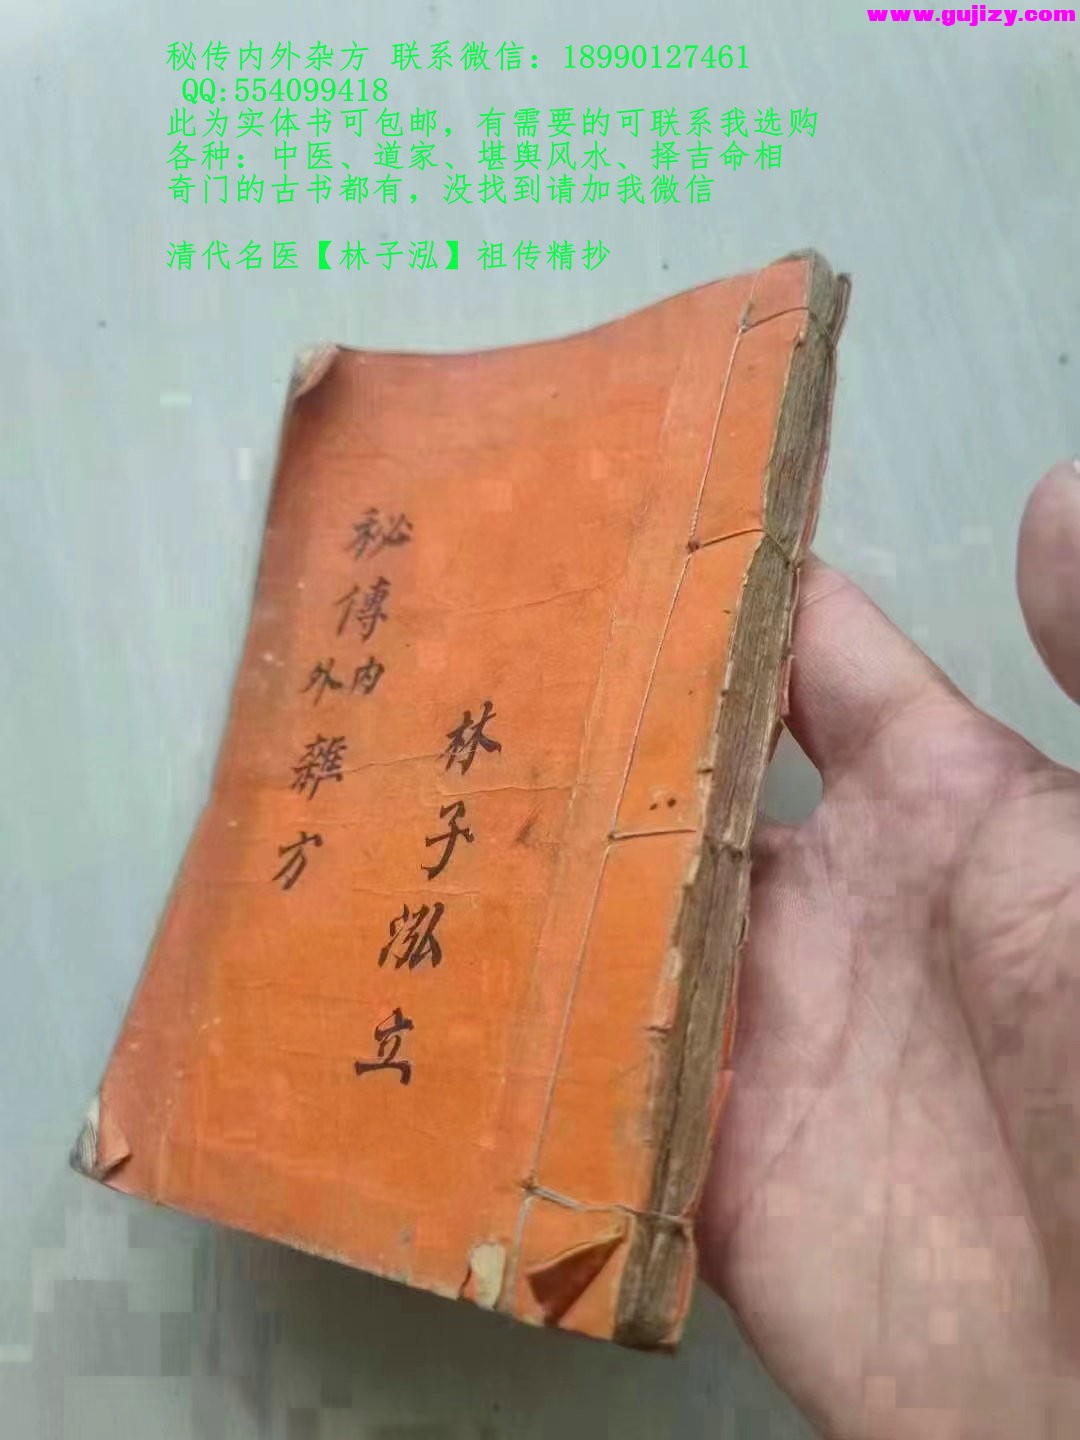 www.gujizy.com
秘传内外杂方 联系微信：18990127461
QQ:554099418
此为实体书可包邮，有需要的可联系我选购
各种：中医、道家、堪舆风水、择吉命相
奇门的古书都有，没找到请加我微信
清代名医【林子泓】祖传精抄
林子泓立
秘傳内外雜方